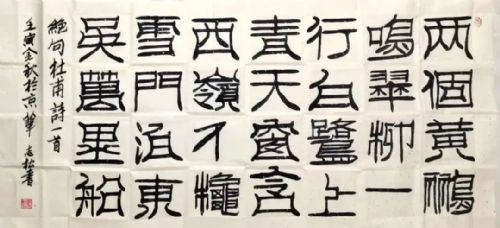 两個黃鸝
鳴翠柳一
行白鷺上
青天窗含
西嶺千龝
雪門泊東
吳萬里船
絕句杜甫詩一首
壬寅金秋於京華